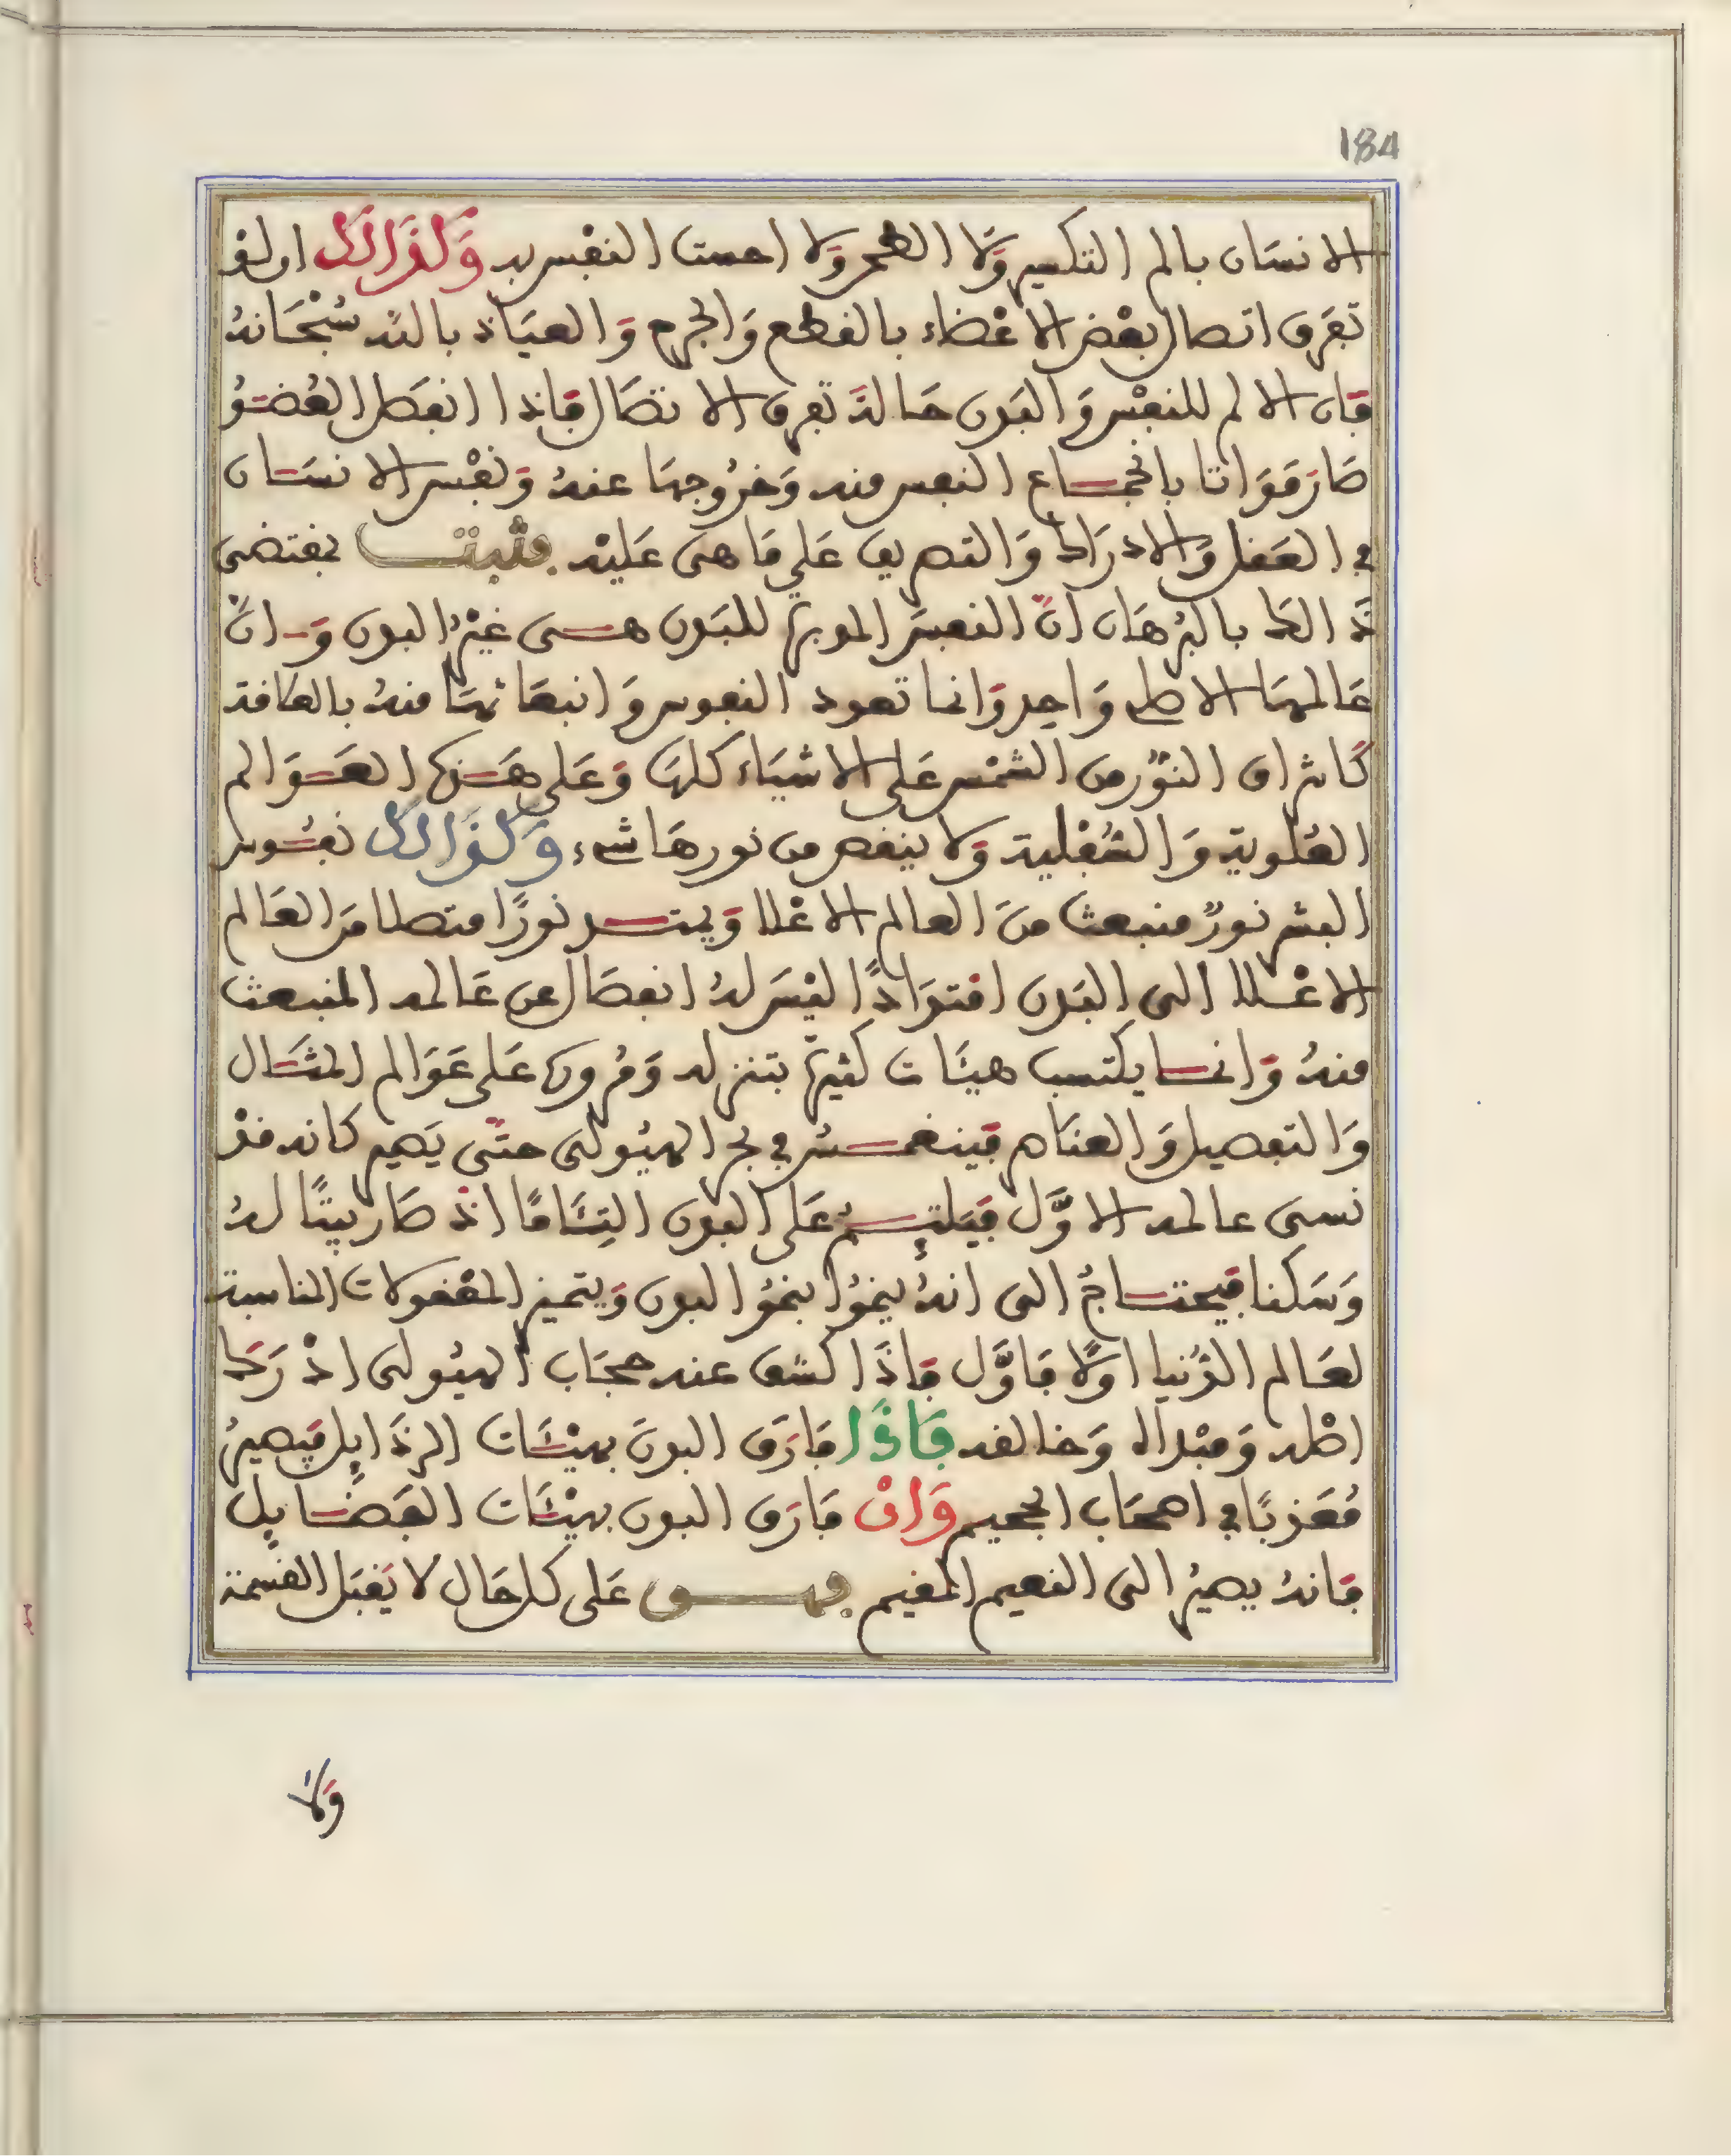 184
الانسَان بالم التكسير وَلا الطحر وَلا احست النفْس به وَكَذَالك ان لو
تفَرق اتصال بعْض الاعْضاء بالقطع وَالجرح وَالعيَاذ بالله سُبْحَانهُ
فَان الالم للنفْس وَالبَدن حَالة تفرق الاتصَال فَاذا انفصَل العُضْوُ
صَارَ مَوَاتا بانخمَاع النفس منه وَخرُوجهَا عنهُ وَنفْس الانسَان
في العَقل وَالادرَاك وَالتصريف عَلي مَا هىَ عَليْه فثبتت بمقتضى
ذَالك بالبُرهَان انَّ النفسَ المدبرة للبَدن هى غيْرُ البدن وَانَّ
عَالمهَا الاصلى وَاحِد وَانما تعود النفوس وَانبعَاثهَا منهُ بالطافة
كَاشراق النوْر من الشمْس عَلى الاشيَاء كلهَا وَعَلى هَذه العَوَالم
العُلوية وَالسُّفْلية وَلا ينقص من نورهَا شىء وَكذَالك نفُوس
البشر نورٌ منبعث منَ العالم الاعْلا وَيمتد نورًا متصلا منَ العَالم
الاعْلا الى البَدن امتدَادًا ليْسَ لهُ انفصَال عن عَالمه المنبعث
منهُ وَانما يكتسب هيئَات كثيرَة بتنزله وَمُروره عَلى عَوَالم المثَال
وَالتفصيل وَالعنَاصر فَينغمسُ في بحر الهيُولى حتىَّ يَصير كانه قدْ
نسى عالمه الاوَّل فَيَلتئِمُ عَلى البدن التِئَامًا اذْ صَار بيتًا لهُ
وَسَكنا فيحتاجُ الى انهُ ينموُا بنموُ البدن وَيتميز المعْقولات المناسبة
لعَالم الدُّنيا اولًا فَاوَّل فَاذَا كشف عنه حجَاب الهيُولى ادْرَكَ
اصْله وَمبْداه وَخالقه فَاذَا فَارَق البدنَ بهيْئَات الرذَايِل فَيصيرُ
مُعَذبًا في اصحَاب الجحيم وَانْ فَارَق البدن بهيْئَات الفَضَايِل
فَانهُ يصيرُ الى النعيم المقيم فهو عَلى كل حَال لا يَقبَل القسْمة
وَلا